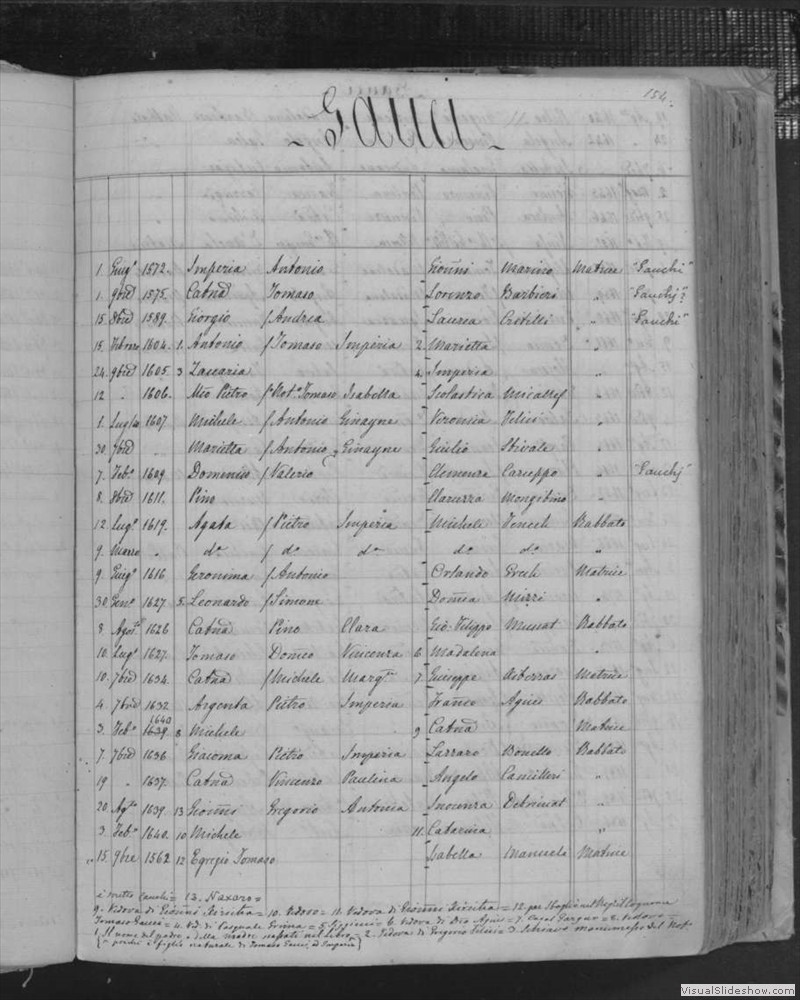 154.
Gauci
1. Giug.º 1572. Imperia Antonio Gionni Marino Matrice "Gauchi"
1. 9bre 1575. Catnа Tomaso Lorenzo Barbieri " "Gauchj"?
15 8bre 1589. Giorgio f Andrea Laurea " "Gauchi"
15. Febraro 1604. 1. Antonio f Tomaso Imperia 2. Marietta "
24. 9bre 1605. 3 Zaccaria 4. Imperia "
12 " 1606. Mro Pietro f Not.º Tomaso Isabella Scolastica Micallef "
1. Luglio 1607. Michele f Antonio Ginayne Veronica Felici "
20. 7bre " Marietta f Antonio Ginayne Giulio Stivale "
7. Feb.º 1609. Domenico f Valerio Clemenza Caruppo " "Gauchj"
8. 8bre 1611. Pino Clarizza Mongibino "
12. Lug.º 1619. Agata f Pietro Imperia Michele Vench Rabbato
9. Marzo " dº f dº dº dº dº "
9. Giug.º 1616. Geronima f Antonio Orlando Matrice
30. Gen.º 1627. 5. Leonardo f Simone Domca Mizzi "
8. Agos.to 1626 Catna Pino Clara Gio. Filippo Rabbato
10. Lug.º 1627. Tomaso Domco Vincenza 6 Madalena "
10. 7bre 1634. Catna f Michele Marg.ta 7 Giuseppe Asterras Matrice
4. 7bre 1632 Argenta Pietro Imperia Franco Agius Rabbato
3. Feb.º 1639. 1640 8 Michele 9 Catna Matrice
7. 7bre 1636. Giacoma Pietro Imperia Lazzaro Bonello Rabbato
19 " 1637. Catna Vincenzo Paulina Angelo Camilleri "
20. Ag.to 1639. 13 Gionni Gregorio Antonia Inoenza Debrincat "
3. Feb.º 1640. 10 Michele 11. Catarina "
15. 9bre 1562 12 Egregio Tomaso Isabella Manuele Matrice
13. Naxaro =
9. Vedova di Gionni = 10. Vedovo = 11. Vedova di Gionni = 12. per
Tomaso Gauci = 4. Ved. di Pasquale Grima = 5. = 6. Vedova di Agius = 7. Casal Gargur = 8. Vedovo =
1. Il nome del padre e della madre nel libro = 2. Vedova di Gregorio 3. del Not.º
perchè è figlio naturale di Tomaso Gauci ed Imperia
VisualSlideshow.com